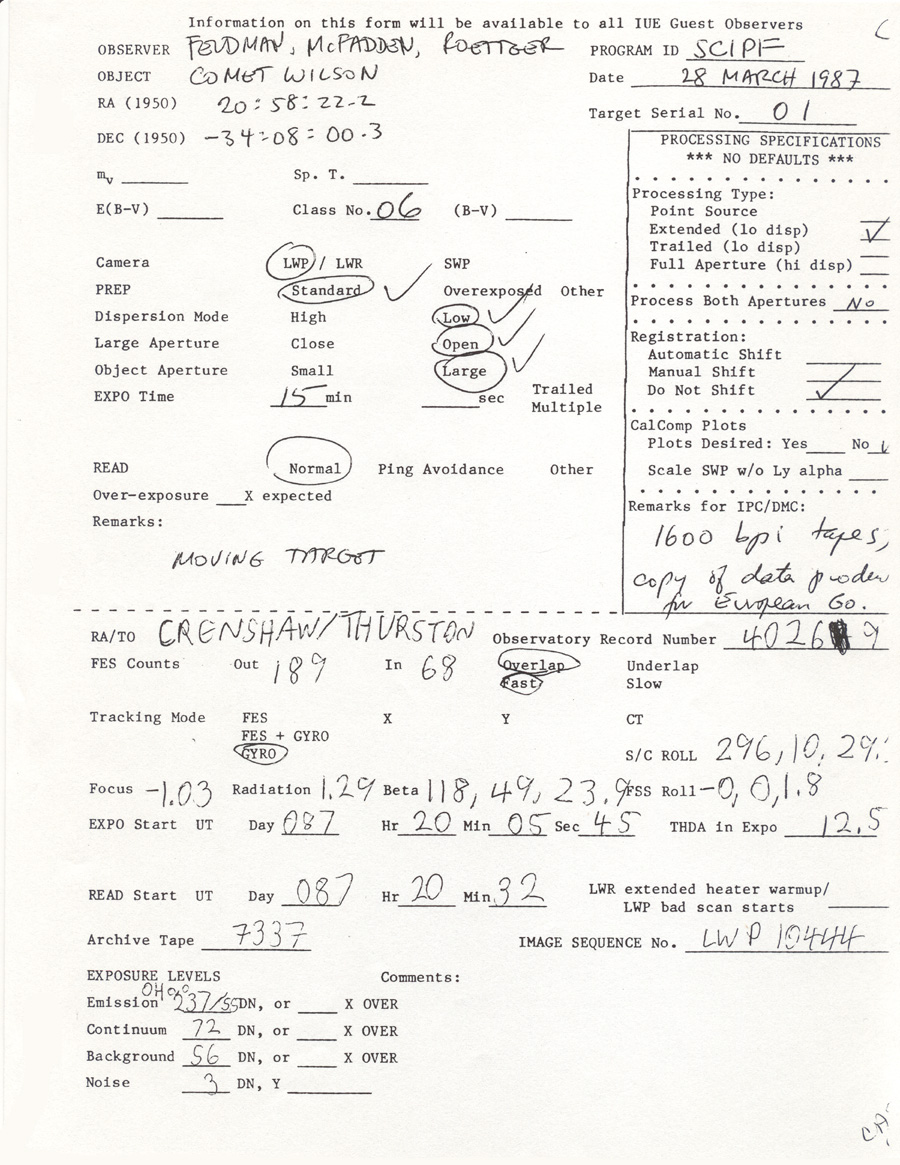 Information on this form will be available to all IUE Guest Observers
OBSERVER FELDMAN, McFADDEN, ROETTGER PROGRAM ID SCIPF
OBJECT COMET WILSON Date 28 MARCH 1987
RA (1950) 20:58:22.2
Target Serial No. 01
DEC (1950) -34:08:00.3
PROCESSING SPECIFICATIONS
*** NO DEFAULTS ***
m_v ____ Sp. T. ____
E(B-V) ____ Class No. 06 (B-V) ____
Processing Type:
Point Source
Extended (lo disp) ✓
Trailed (lo disp)
Full Aperture (hi disp) ____
Process Both Apertures No
Registration:
Automatic Shift ____
Manual Shift ____
Do Not Shift ✓
CalComp Plots
Plots Desired: Yes____ No ✓
Scale SWP w/o Ly alpha ____
Remarks for IPC/DMC:
1600 bpi tapes,
copy of data
for European GO.
Camera LWP / LWR SWP
PREP Standard ✓ Overexposed Other
Dispersion Mode High Low ✓
Large Aperture Close Open ✓
Object Aperture Small Large ✓
EXPO Time 15 min ____sec Trailed
Multiple
READ Normal Ping Avoidance Other
Over-exposure ___X expected
Remarks:
MOVING TARGET
RA/TO CRENSHAW/THURSTON Observatory Record Number 4026 9
FES Counts Out 189 In 68 Overlap Underlap
Fast Slow
Tracking Mode FES X Y CT
FES + GYRO
GYRO S/C ROLL 296,10,29
Focus -1.03 Radiation 1.29 Beta 118,49,23.9 FSS Roll -0,0,1.8
EXPO Start UT Day 087 Hr 20 Min 05 Sec 45 THDA in Expo 12.5
READ Start UT Day 087 Hr 20 Min 32 LWR extended heater warmup/
LWP bad scan starts ____
Archive Tape 7337 IMAGE SEQUENCE No. LWP 10444
EXPOSURE LEVELS Comments:
OH
Emission 237/55 DN, or ____ X OVER
Continuum 72 DN, or ____ X OVER
Background 56 DN, or ____ X OVER
Noise 3 DN, Y ____